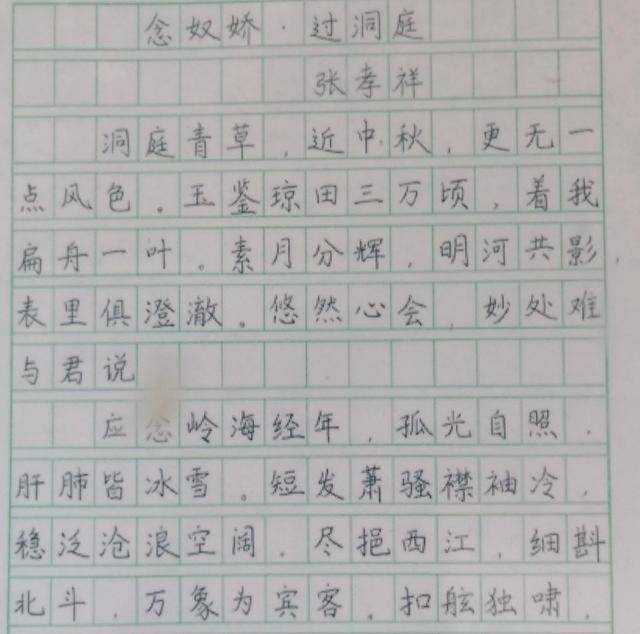 念奴娇·过洞庭
张孝祥
洞庭青草,近中秋,更无一
点风色。玉鉴琼田三万顷,着我
扁舟一叶。素月分辉,明河共影,
表里俱澄澈。悠然心会,妙处难
与君说
应念岭海经年,孤光自照,
肝肺皆冰雪。短发萧骚襟袖冷,
稳泛沧浪空阔。尽挹西江,细斟
北斗,万象为宾客。扣舷独啸,